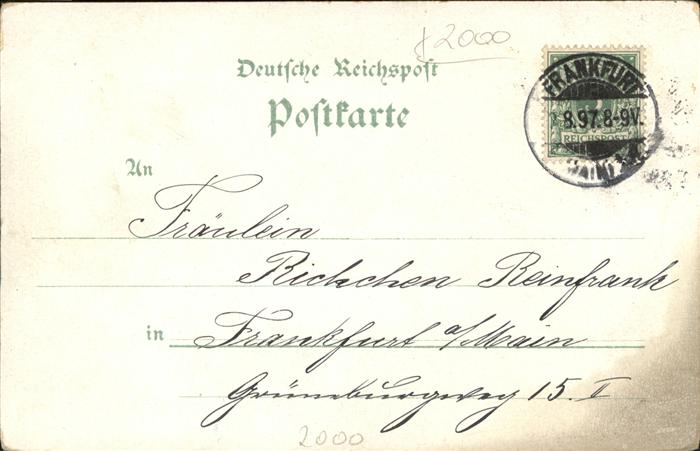 2000
Deutsche Reichspost
Postkarte
FRANKFURT
8.97.8-9V.
REICHSPOST
(MAIN)
An
Fräulein
Rickchen Reinfrank
in Frankfurt a/Main
Grüneburgweg 15. II
2000